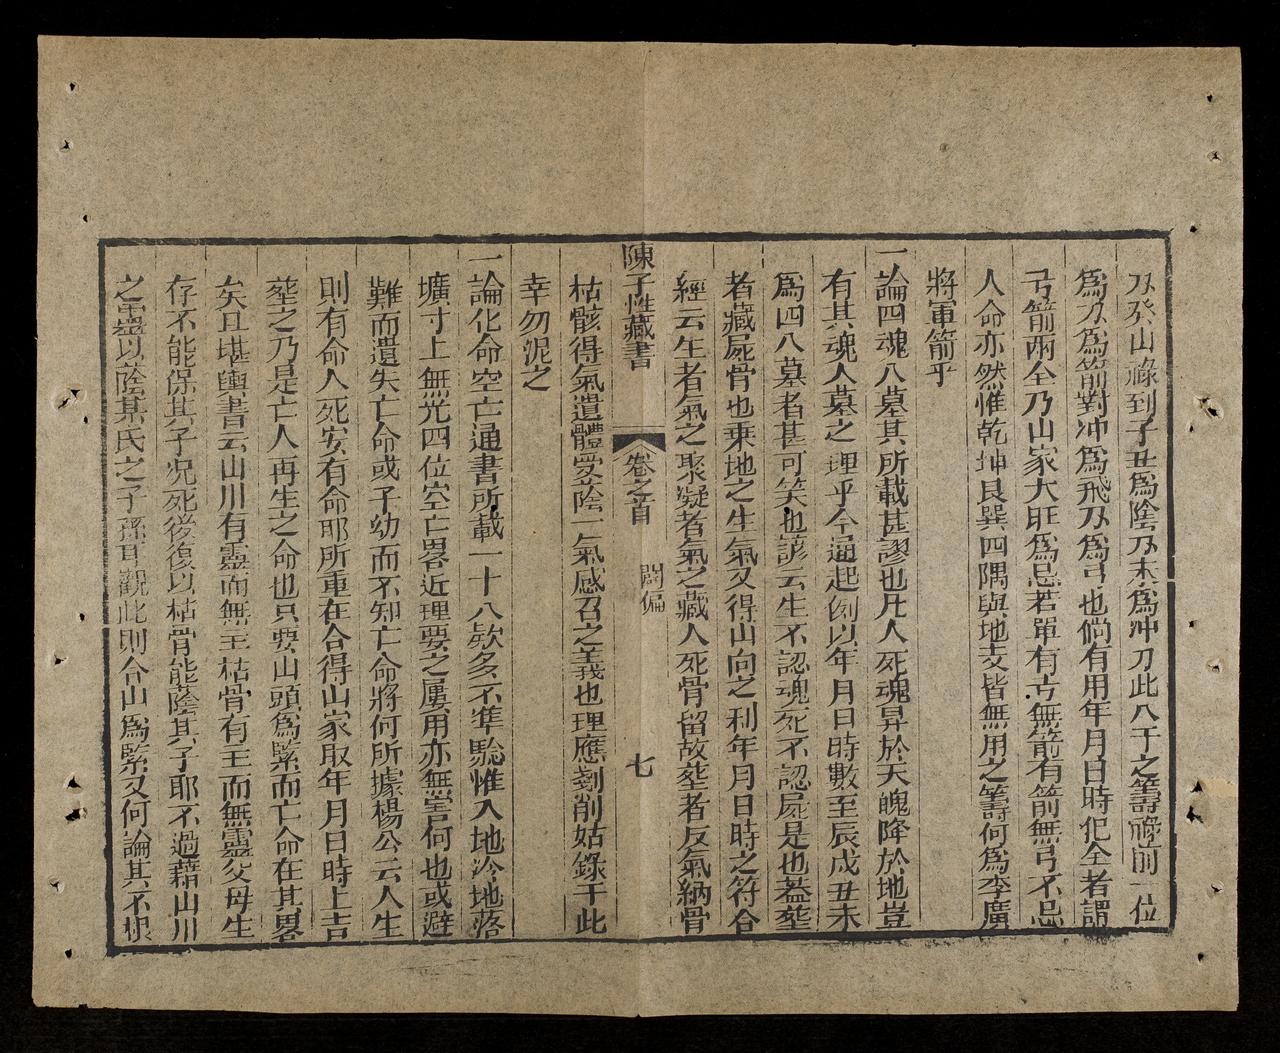 刄癸山祿到子丑爲陰刄未爲冲刀此八干之籌祿前一位
爲刄爲箭對冲爲飛刄爲弓也倘有用年月日時犯全者謂
弓箭兩全乃山家大旺爲忌若單有弓無箭有箭無弓不忌
人命亦然惟乾坤艮巽四隅與地支皆無用之籌何爲李廣
將軍箭乎
一論四魂八墓其所載甚謬也凡人死魂昇於天魄降於地豈
有其魂人墓之理乎今通起例以年月日時數至辰戌丑未
爲四八墓者甚可笑也諺云生不認魂死不認屍是也葢塟
者藏屍骨也乗地之生氣又得山向之利年月日時之符合
經云生者氣之聚凝者氣之藏人死骨留故塟者反氣納骨
陳子性藏書 卷之首 闢偏 七
枯骸得氣遺體受蔭一氣感召之義也理應剗削姑錄于此
幸勿泥之
一論化命空亡通書所載一十八欵多不準騐惟入地冷地落
壙寸上無光四位空亡畧近理要之屢用亦無害何也或避
難而遺失亡命或子幼而不知亡命將何所據楊公云人生
則有命人死安有命耶所重在合得山家取年月日時上吉
塟之乃是亡人再生之命也只要山頭爲緊而亡命在其畧
矣且堪輿書云山川有靈而無主枯骨有主而無靈父母生
存不能保其子况死後復以枯骨能蔭其子耶不過藉山川
之靈以蔭某氏之子孫耳觀此則合山爲緊又何論其不根